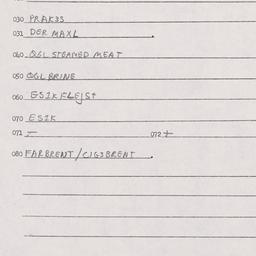 030 PRAKES
031 DER MAXL
040 QGL STEAMED MEAT
050 QGL BRINE
060 ESIKFLEJST
070 ESIK
071 - 072 +
080 FARBRENT/CIGJBRENT